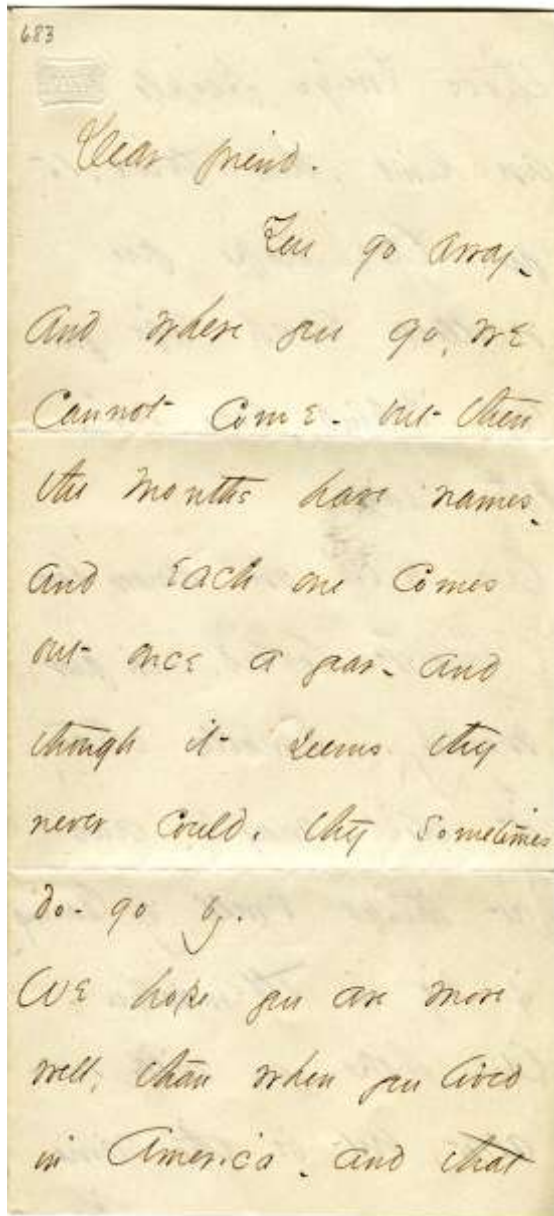 683
Dear friend.
You go away -
And where you go, we
cannot come - but then
the months have names -
and each one comes
but once a year - and
though it seems they
never could, they sometimes
do - go by.
We hope you are more
well, than when you lived
in America - and that